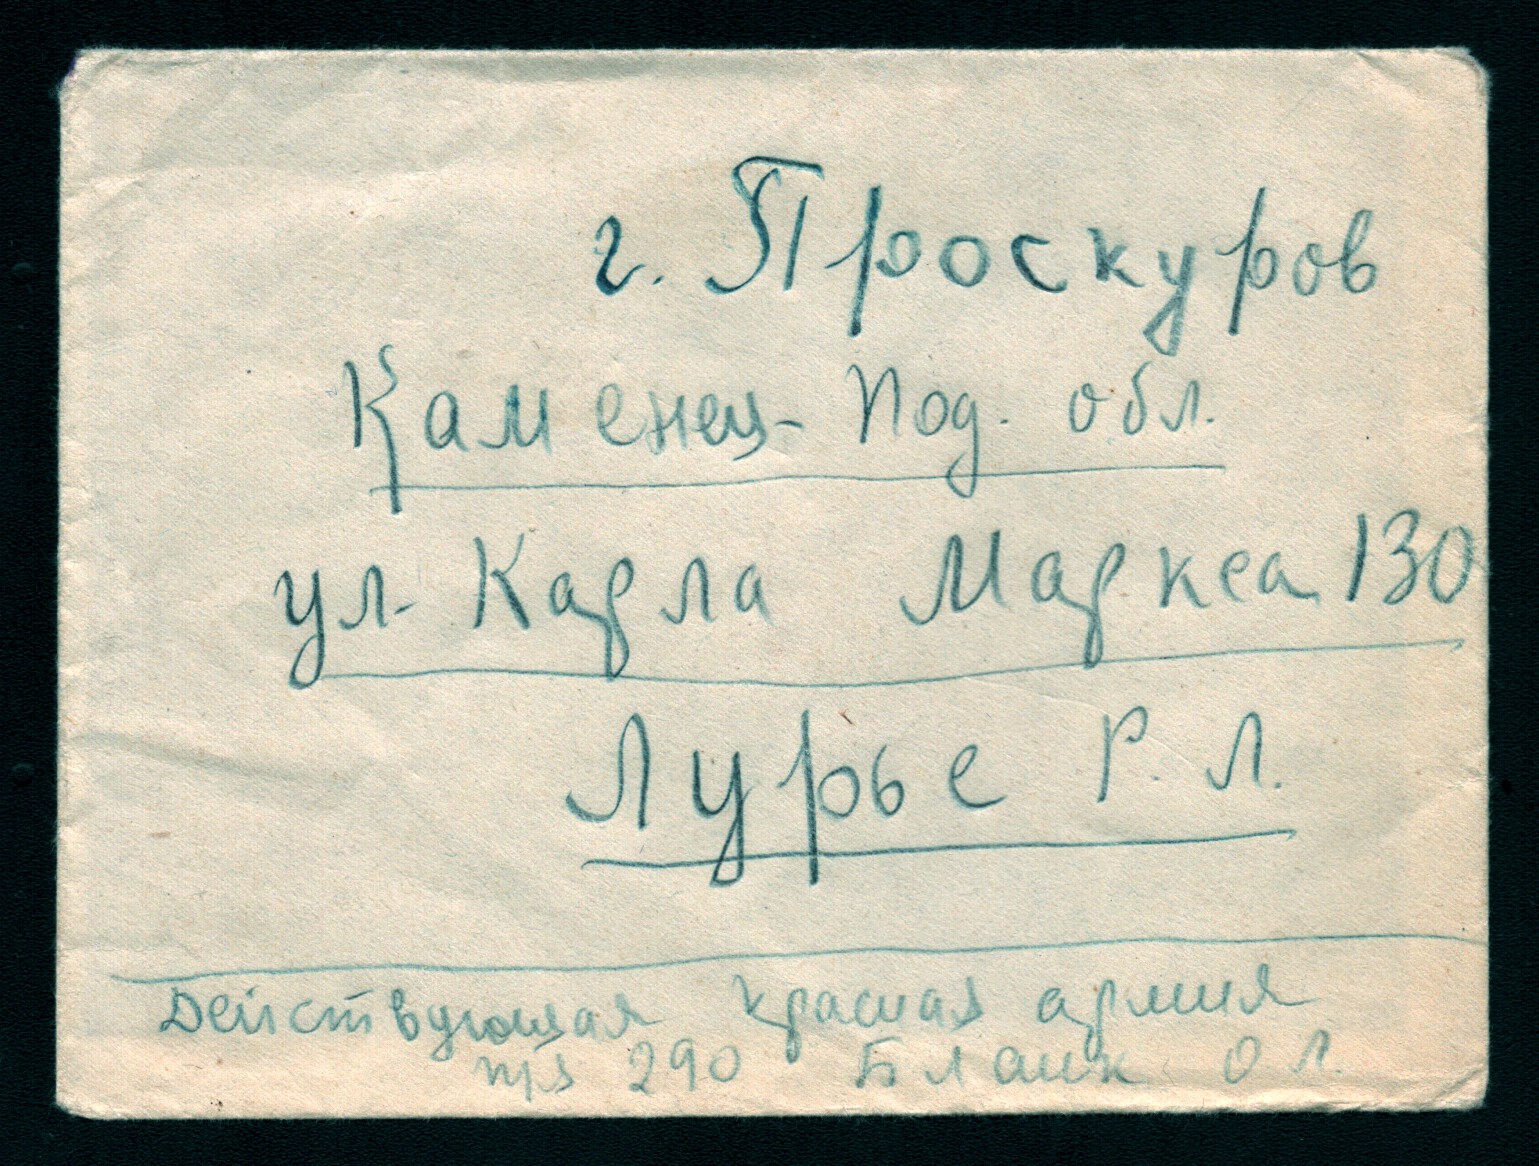 г. Проскуров
Каменец-Под. обл.
ул. Карла Маркса 130
Лурье Р. Л.
Действующая красная армия
п/я 290 Бланк О Л.